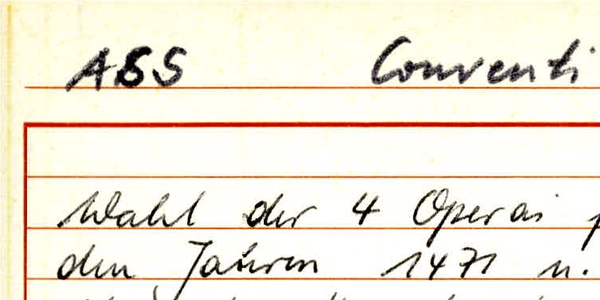 ASS Conventi
Wahl der 4 Operai
den Jahren 1471 u.